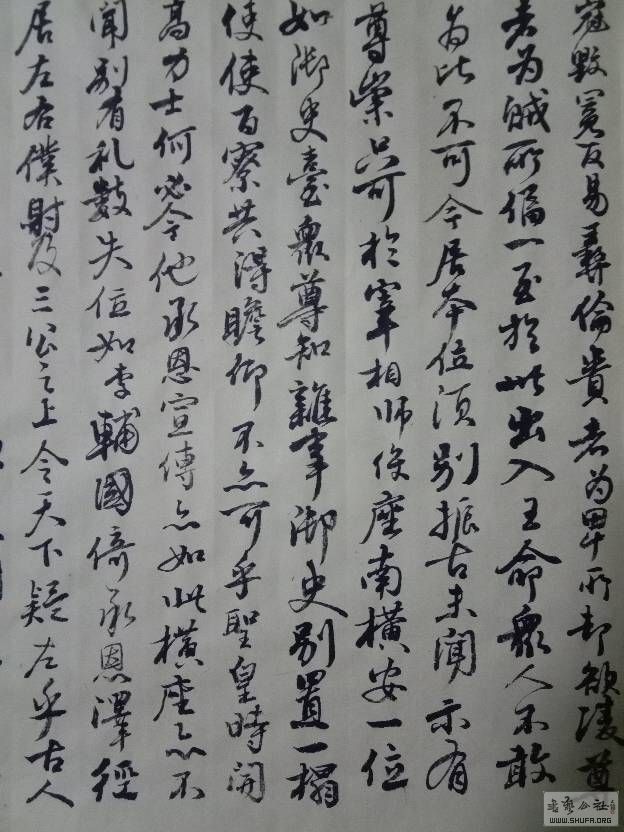 冠毀冕反易彝倫貴者為卑所却欲陵尊
者為賊所偪一至於此出入王命衆人不敢
為比不可令居本位須別振古未聞示有
尊崇只可於宰相師保座南橫安一位
如御史臺衆尊知雜事御史別置一榻
使使百寮共得瞻仰不亦可乎聖皇時開
高力士何必令他承恩宣傳亦如此橫座亦不
聞別有礼數失位如李輔國倚承恩澤徑
居左右僕射及三公之上令天下疑左乎古人
WWW.SHUFA.ORG